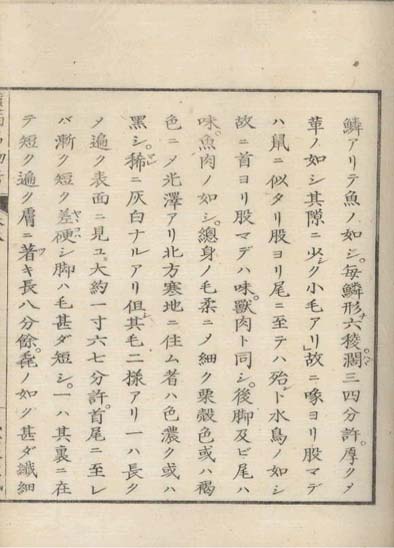 鱗アリテ魚ノ如シ。毎鱗形六稜。濶三四分許。厚クメ
革ノ如シ其隙ニ少シク小毛アリ」故ニ喙ヨリ股マデ
ハ鼠ニ似タリ股ヨリ尾ニ至テハ殆ド水鳥ノ如シ
故ニ首ヨリ股マデハ味。獸肉ト同シ。後脚及ビ尾ハ
味。魚肉ノ如シ。總身ノ毛柔ニメ細ク栗殼色或ハ褐
色ニメ光澤アリ北方寒地ニ住ム者ハ色濃ク或ハ
黑シ。稀ニ灰白ナルアリ但其毛二様アリ一ハ長ク
メ遍ク表面ニ見ユ。大約一寸六七分許。首尾ニ至レ
バ漸ク短ク差硬シ脚ハ毛甚ダ短シ。一ハ其裏ニ在
テ短ク遍ク膚ニ著キ長八分餘。毳ノ如ク甚ダ纎細